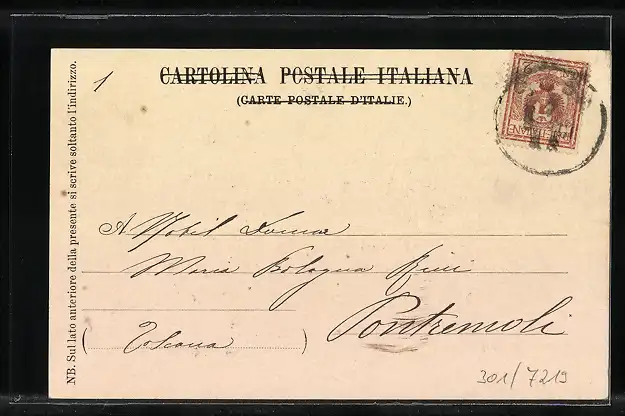 1
CARTOLINA POSTALE ITALIANA
(CARTE POSTALE D'ITALIE.)
NB. Sul lato anteriore della presente si scrive soltanto l'indirizzo.
A Nobil Donna
Maria Bologna
Pontremoli
(Toscana)
301/7219